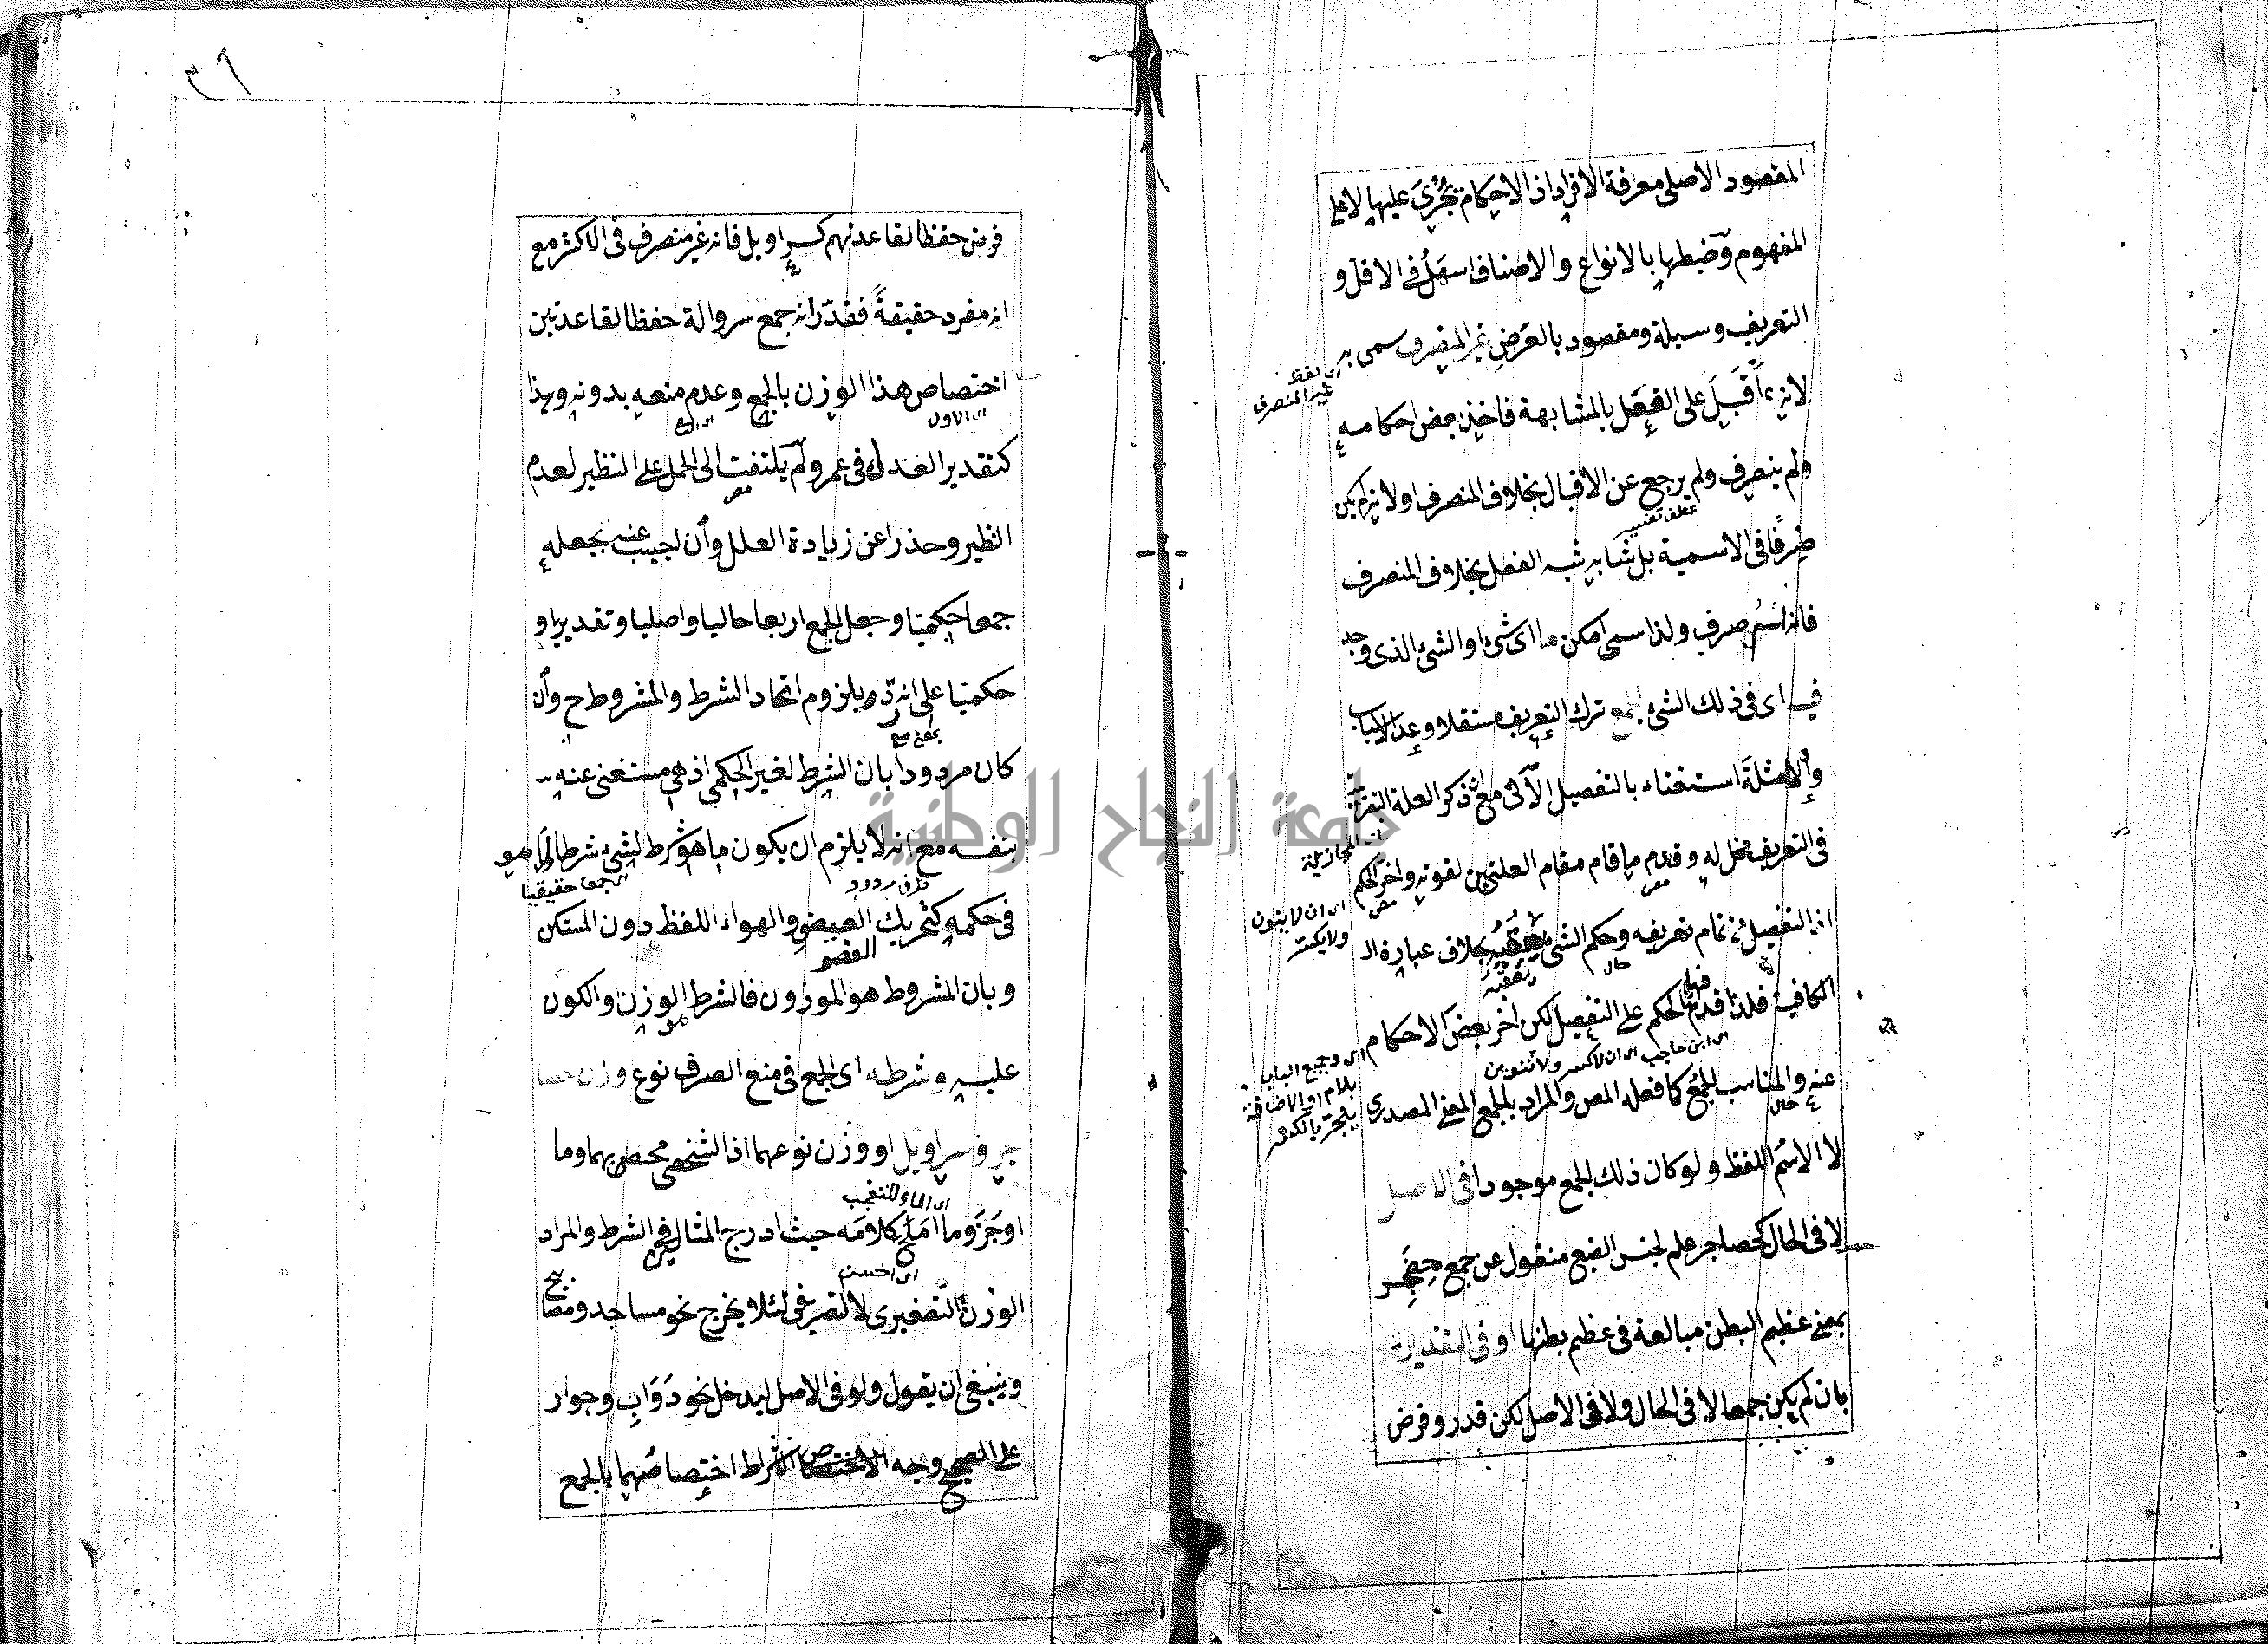 المقصود الاصلى معرفة الافراد اذ الاحكام تجرى عليها لا على
المفهوم وضبطها بالانواع والاصناف اسهل فى الاقل و
التعريف وسيلة ومقصود بالعرض غير المنصرف سمى به
اى لفظ
غير المنصرف
لانه اقبل على الفعل بالمشابهة فاخذ بعض احكامه
ولم ينصرف ولم يرجع عن الاقبال بخلاف المنصرف او لانه لم يكن
عطف تفسير
صرفا فى الاسمية بل شابه شبه الفعل بخلاف المنصرف
فانه اسم صرف ولذا سمى امكن ما اى شئ او الشئ الذى وجد
فيه اى فى ذلك الشئ مع ترك التعريف مستقلا وعد الاسباب
والامثلة استغناء بالتفصيل الآتى مع ان ذكر العلة
فى التعريف مخل له وقدم ما قام مقام العلتين لقوته واخر الحكم
اى ان لا ينون
ولا يكسر
اذ التفصيل من تمام تعريفه وحكم الشئ بخلاف عبارة الـ
الكافية فلذا قدم الحكم على التفصيل لكن اخر بعض الاحكام
اى ابن حاجب اى ان لا كسر ولا تنوين
اى وجميع الباب
بلام او الاضافة
ينجر بالكسر
عنه والمناسب للجمع كما فعله المص والمراد بالجمع المعنى المصدرى
لا الاسم اللفظ ولو كان ذلك الجمع موجودا فى الاصل
لا فى الحال كحضاجر علم لجنس الضبع منقول عن جمع حضجر
بمعنى عظيم البطن مبالغة فى عظم بطنها او فى التقدير
بان لم يكن جمعا لا فى الحال ولا فى الاصل لكن قدر وفرض
٣٦
فرض حفظا لقاعدتهم كسراويل فانه غير منصرف فى الاكثر مع
انه مفرد حقيقة فقدر انه جمع سروالة حفظا لقاعدتين
اختصاص هذا الوزن بالجمع وعدم منعه بدونه وهذا
اى الاول
كتقدير العدل فى عمر ولم يلتفت الى الحمل على النظير لعدم
النظير وحذرا عن زيادة العلل وان اجيب عنه بجعله
جمعا حكميا وجعل الجمع اربعا حاليا واصليا وتقديرا و
حكميا على انه رد بلزوم اتحاد الشرط والمشروط ح وان
كان مردودا بان الشرط لغير الحكمى اذ هو مستغنى عنه
بنفسه مع انه لا يلزم ان يكون ما هو شرط لشئ شرطا لما هو
اى جمعا حقيقيا
فى حكمه كتحريك والهواء اللفظ دون المستكن
العضو
وبان المشروط هو الموزون فالشرط الوزن والكون
عليه وشرطه اى الجمع فى منع الصرف نوع وزن حضا
جر وسراويل او وزن نوعهما اذ الشخصى مختص بهما وما
اوجز وما املح كلامه حيث ادرج المثال فى الشرط والمراد
اى احسن
الوزن التصغيرى لا التصريفى لئلا يخرج نحو مساجد ومصا
بيح
وينبغى ان يقول ولو فى الاصل ليدخل نحو دواب وجوار
على الصحيح وجه الاشتراط اختصاصهما بالجمع
جامعة النجاح الوطنية